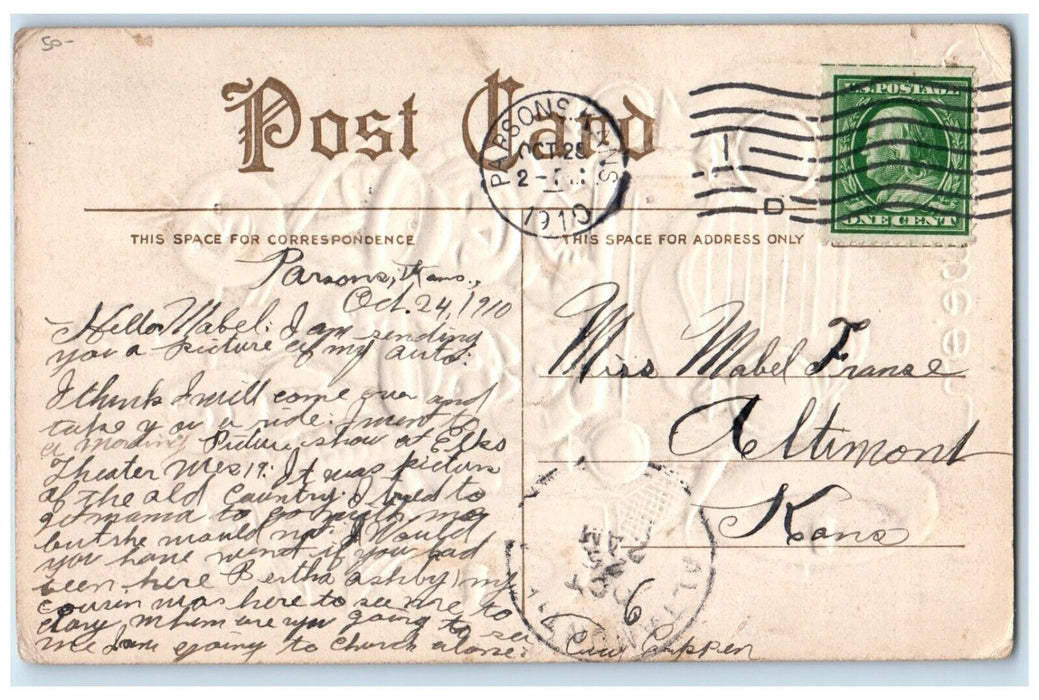 50-
Post Card
PARSONS, KANS.
OCT 25
2-PM
1910
D
U.S. POSTAGE
ONE CENT
THIS SPACE FOR CORRESPONDENCE
THIS SPACE FOR ADDRESS ONLY
Parsons, Kans.,
Oct. 24, 1910
Hello Mabel: I am sending
you a picture of my auto:
I think I will come over and
take you a ride: I went to
a moving Picture show at Elks
Theater Wes 19: It was picture
of the old Country. I tried to
get mama to go with me
but she would not: I Would
you have went if you had
been here Bertha ashby, my
cousin was here to see me to
day, When are you going to see
me I am going to church alone:
Miss Mabel Franse
Altimont
Kans